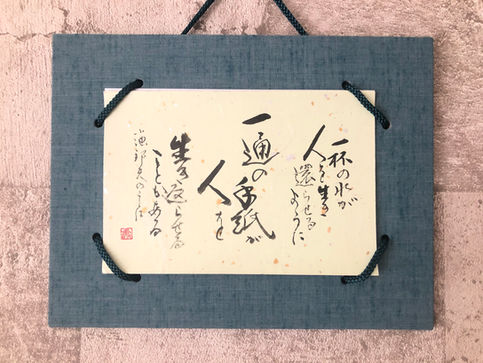 一杯の水が
人を生き
還らせるように
一通の手紙が
人を
生き返らせる
こともある
邦夫のことば